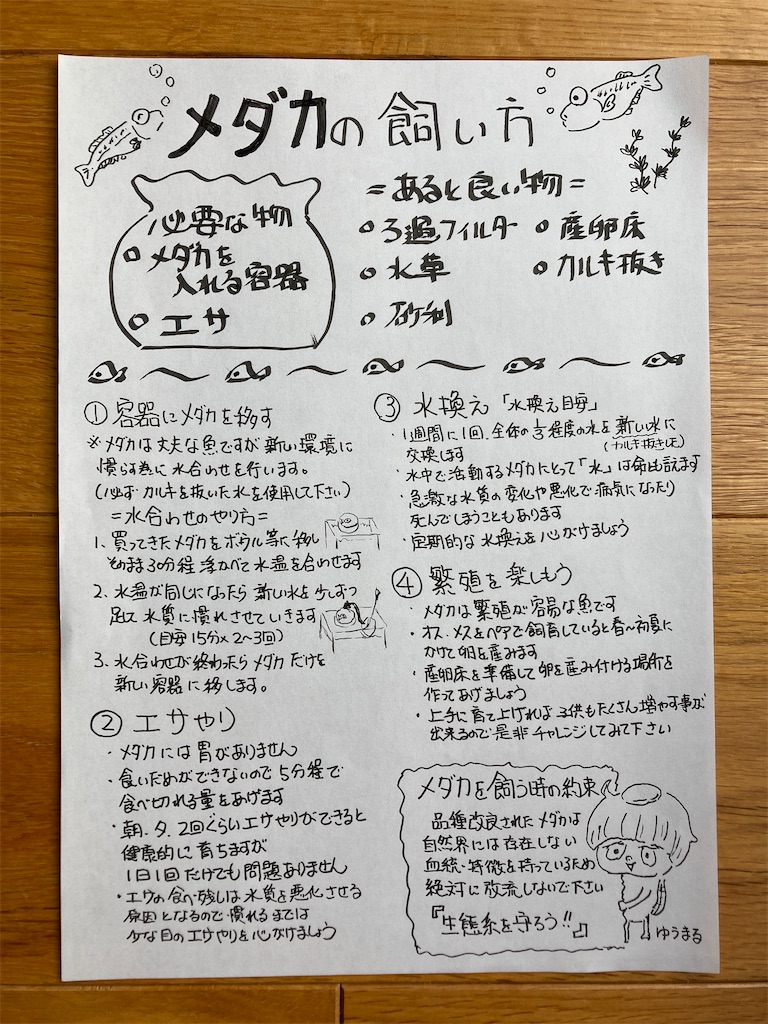 メダカの飼い方
必要な物
○メダカを
入れる容器
○エサ
=あると良い物=
○ろ過フィルター
○水草
○砂利
○産卵床
○カルキ抜き
① 容器にメダカを移す
※メダカは丈夫な魚ですが新しい環境に
慣らす為に水合わせを行います。
(必ずカルキを抜いた水を使用して下さい)
=水合わせのやり方=
1. 買ってきたメダカをボウル等に移し
そのまま30分程浮かべて水温を合わせます
2. 水温が同じになったら新しい水を少しずつ
足して水質に慣れさせていきます
(目安15分×2〜3回)
3. 水合わせが終わったらメダカだけを
新しい容器に移します。
② エサやり
・メダカには胃がありません
・食いだめができないので5分程で
食べ切れる量をあげます
・朝、夕、2回ぐらいエサやりができると
健康的に育ちますが
1日1回だけでも問題ありません
・エサの食べ残しは水質を悪化させる
原因となるので慣れるまでは
少な目のエサやりを心がけましょう
③ 水換え「水換え目安」
・1週間に1回、全体の1/3程度の水を新しい水に
(カルキ抜きした)
交換します
・水中で活動するメダカにとって「水」は命とも言えます
・急激な水質の変化や悪化で病気になったり
死んでしまうこともあります
・定期的な水換えを心がけましょう
④ 繁殖を楽しもう
・メダカは繁殖が容易な魚です
・オス、メスをペアで飼育していると春〜初夏に
かけて卵を産みます
・産卵床を準備して卵を産み付ける場所を
作ってあげましょう
・上手に育て上げれば子供もたくさん増やす事が
出来るので是非チャレンジしてみて下さい
メダカを飼う時の約束
品種改良されたメダカは
自然界には存在しない
血統・特徴を持っているため
絶対に放流しないで下さい
『生態系を守ろう!!』
ゆうまる